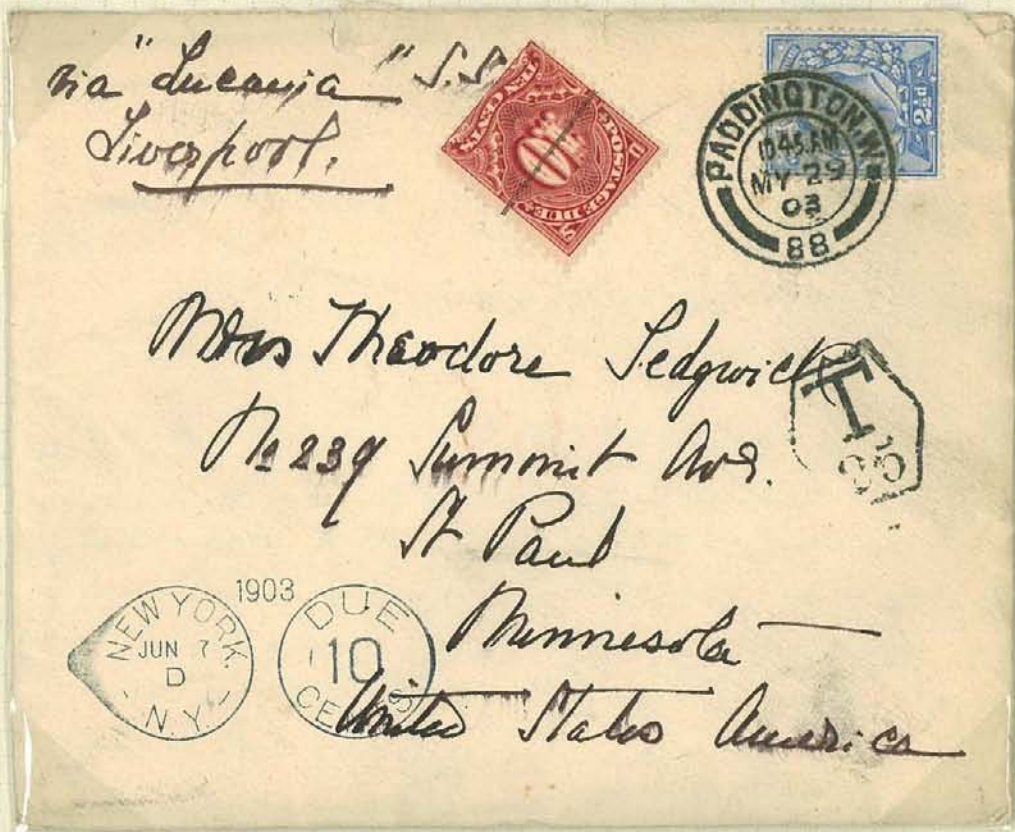 via "Lucania" S.S.
Liverpool.
TEN CENTS
10
POSTAGE DUE
U S
2½d
PADDINGTON. W.
10.45.AM
MY 29
03
88
Mrs Theodore Sedgwick
No 239 Summit Ave.
St Paul
Minnesota
United States America
T
25
1903
NEW YORK.
JUN 7
D
N.Y.
DUE
10
CENTS